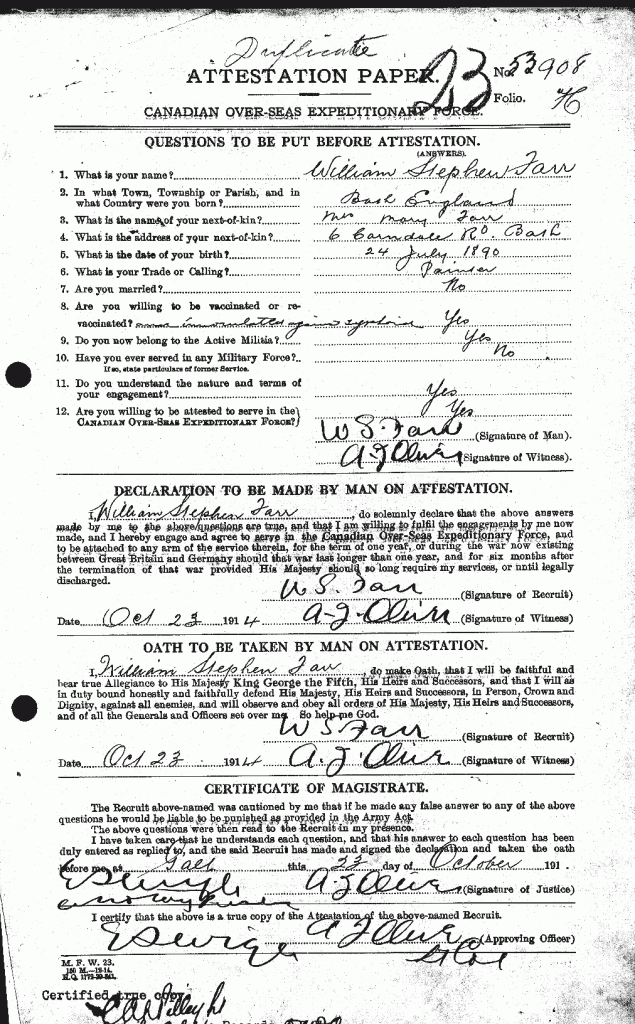 Duplicate
ATTESTATION PAPER.
No. 53908
23
Folio.
CANADIAN OVER-SEAS EXPEDITIONARY FORCE.
QUESTIONS TO BE PUT BEFORE ATTESTATION.
(ANSWERS).
1. What is your name? William Stephen Farr
2. In what Town, Township or Parish, and in
what Country were you born? Bath England
3. What is the name of your next-of-kin? Mrs Mary Farr
4. What is the address of your next-of-kin? 6 Rd. Bath
5. What is the date of your birth? 24 July 1890
6. What is your Trade or Calling? Painter
7. Are you married? No
8. Are you willing to be vaccinated or re-
vaccinated? Yes
9. Do you now belong to the Active Militia? Yes
10. Have you ever served in any Military Force? No
If so, state particulars of former Service.
11. Do you understand the nature and terms of
your engagement? Yes
12. Are you willing to be attested to serve in the Yes
CANADIAN OVER-SEAS EXPEDITIONARY FORCE?
W S. Farr (Signature of Man).
(Signature of Witness).
DECLARATION TO BE MADE BY MAN ON ATTESTATION.
I, William Stephen Farr, do solemnly declare that the above answers
made by me to the above questions are true, and that I am willing to fulfil the engagements by me now
made, and I hereby engage and agree to serve in the Canadian Over-Seas Expeditionary Force, and
to be attached to any arm of the service therein, for the term of one year, or during the war now existing
between Great Britain and Germany should that war last longer than one year, and for six months after
the termination of that war provided His Majesty should so long require my services, or until legally
discharged.
W S. Farr (Signature of Recruit)
Date Oct 23 1914 (Signature of Witness)
OATH TO BE TAKEN BY MAN ON ATTESTATION.
I, William Stephen Farr, do make Oath, that I will be faithful and
bear true Allegiance to His Majesty King George the Fifth, His Heirs and Successors, and that I will as
in duty bound honestly and faithfully defend His Majesty, His Heirs and Successors, in Person, Crown and
Dignity, against all enemies, and will observe and obey all orders of His Majesty, His Heirs and Successors,
and of all the Generals and Officers set over me. So help me God.
W S Farr (Signature of Recruit)
Date Oct 23 1914 (Signature of Witness)
CERTIFICATE OF MAGISTRATE.
The Recruit above-named was cautioned by me that if he made any false answer to any of the above
questions he would be liable to be punished as provided in the Army Act.
The above questions were then read to the Recruit in my presence.
I have taken care that he understands each question, and that his answer to each question has been
duly entered as replied to, and the said Recruit has made and signed the declaration and taken the oath
before me, at Galt this 23 day of October 191 .
(Signature of Justice)
I certify that the above is a true copy of the Attestation of the above-named Recruit.
(Approving Officer)
M. F. W. 23.
Certified true copy